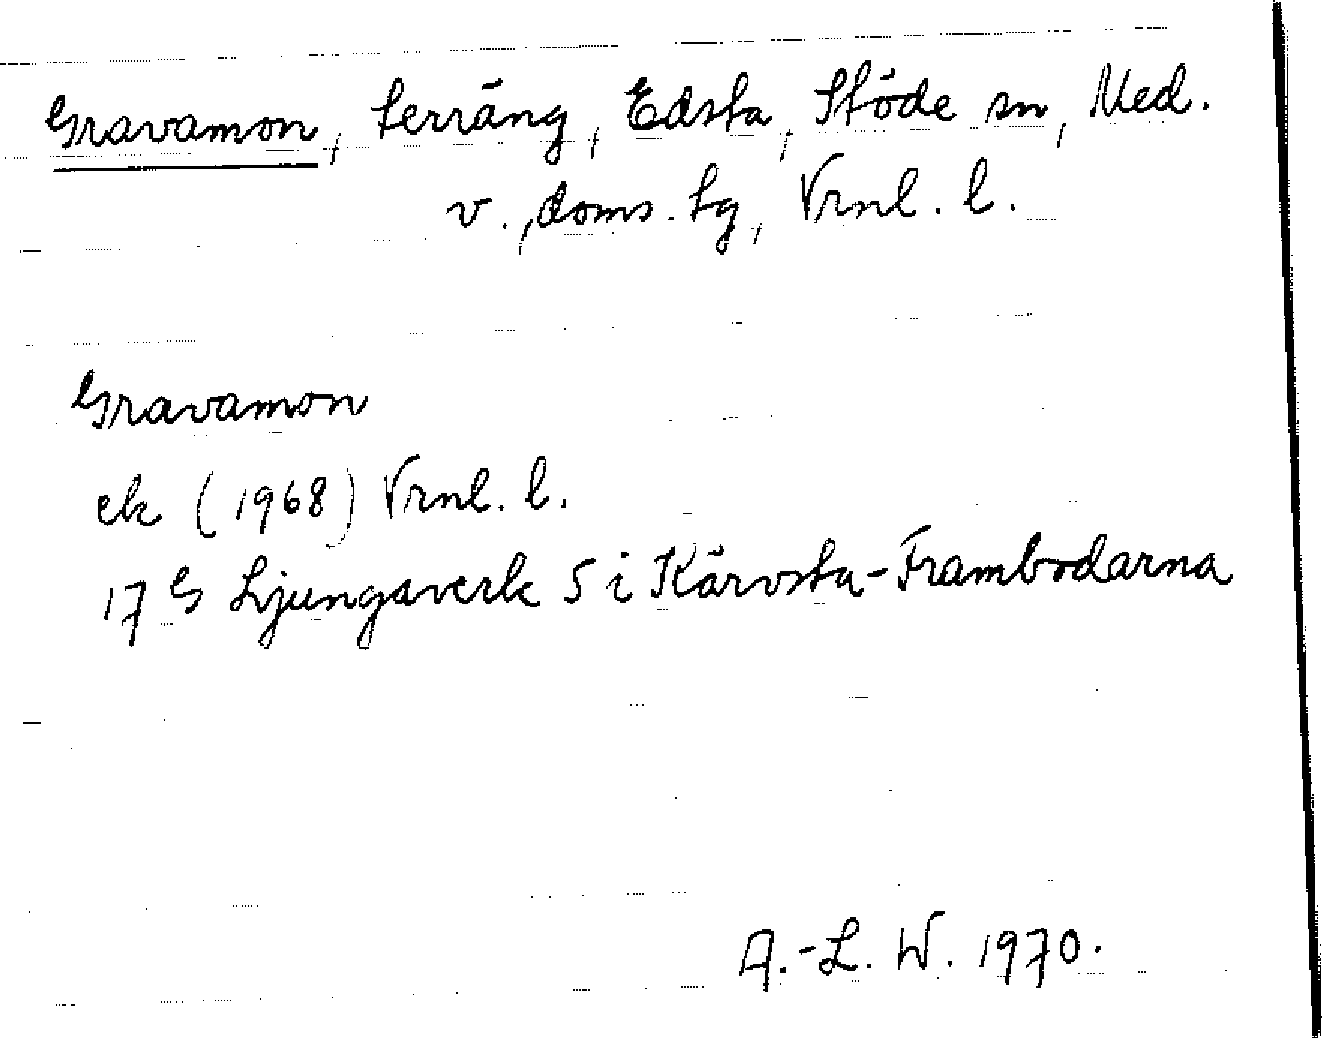 Gravamon, terräng, Edsta, Stöde sn, Med.
v., doms. tg, Vrnl. l.
Gravamon
ek (1968) Vrnl. l.
17 G Ljungaverk S i Kärvsta-Frambodarna
A.-L. W. 1970.